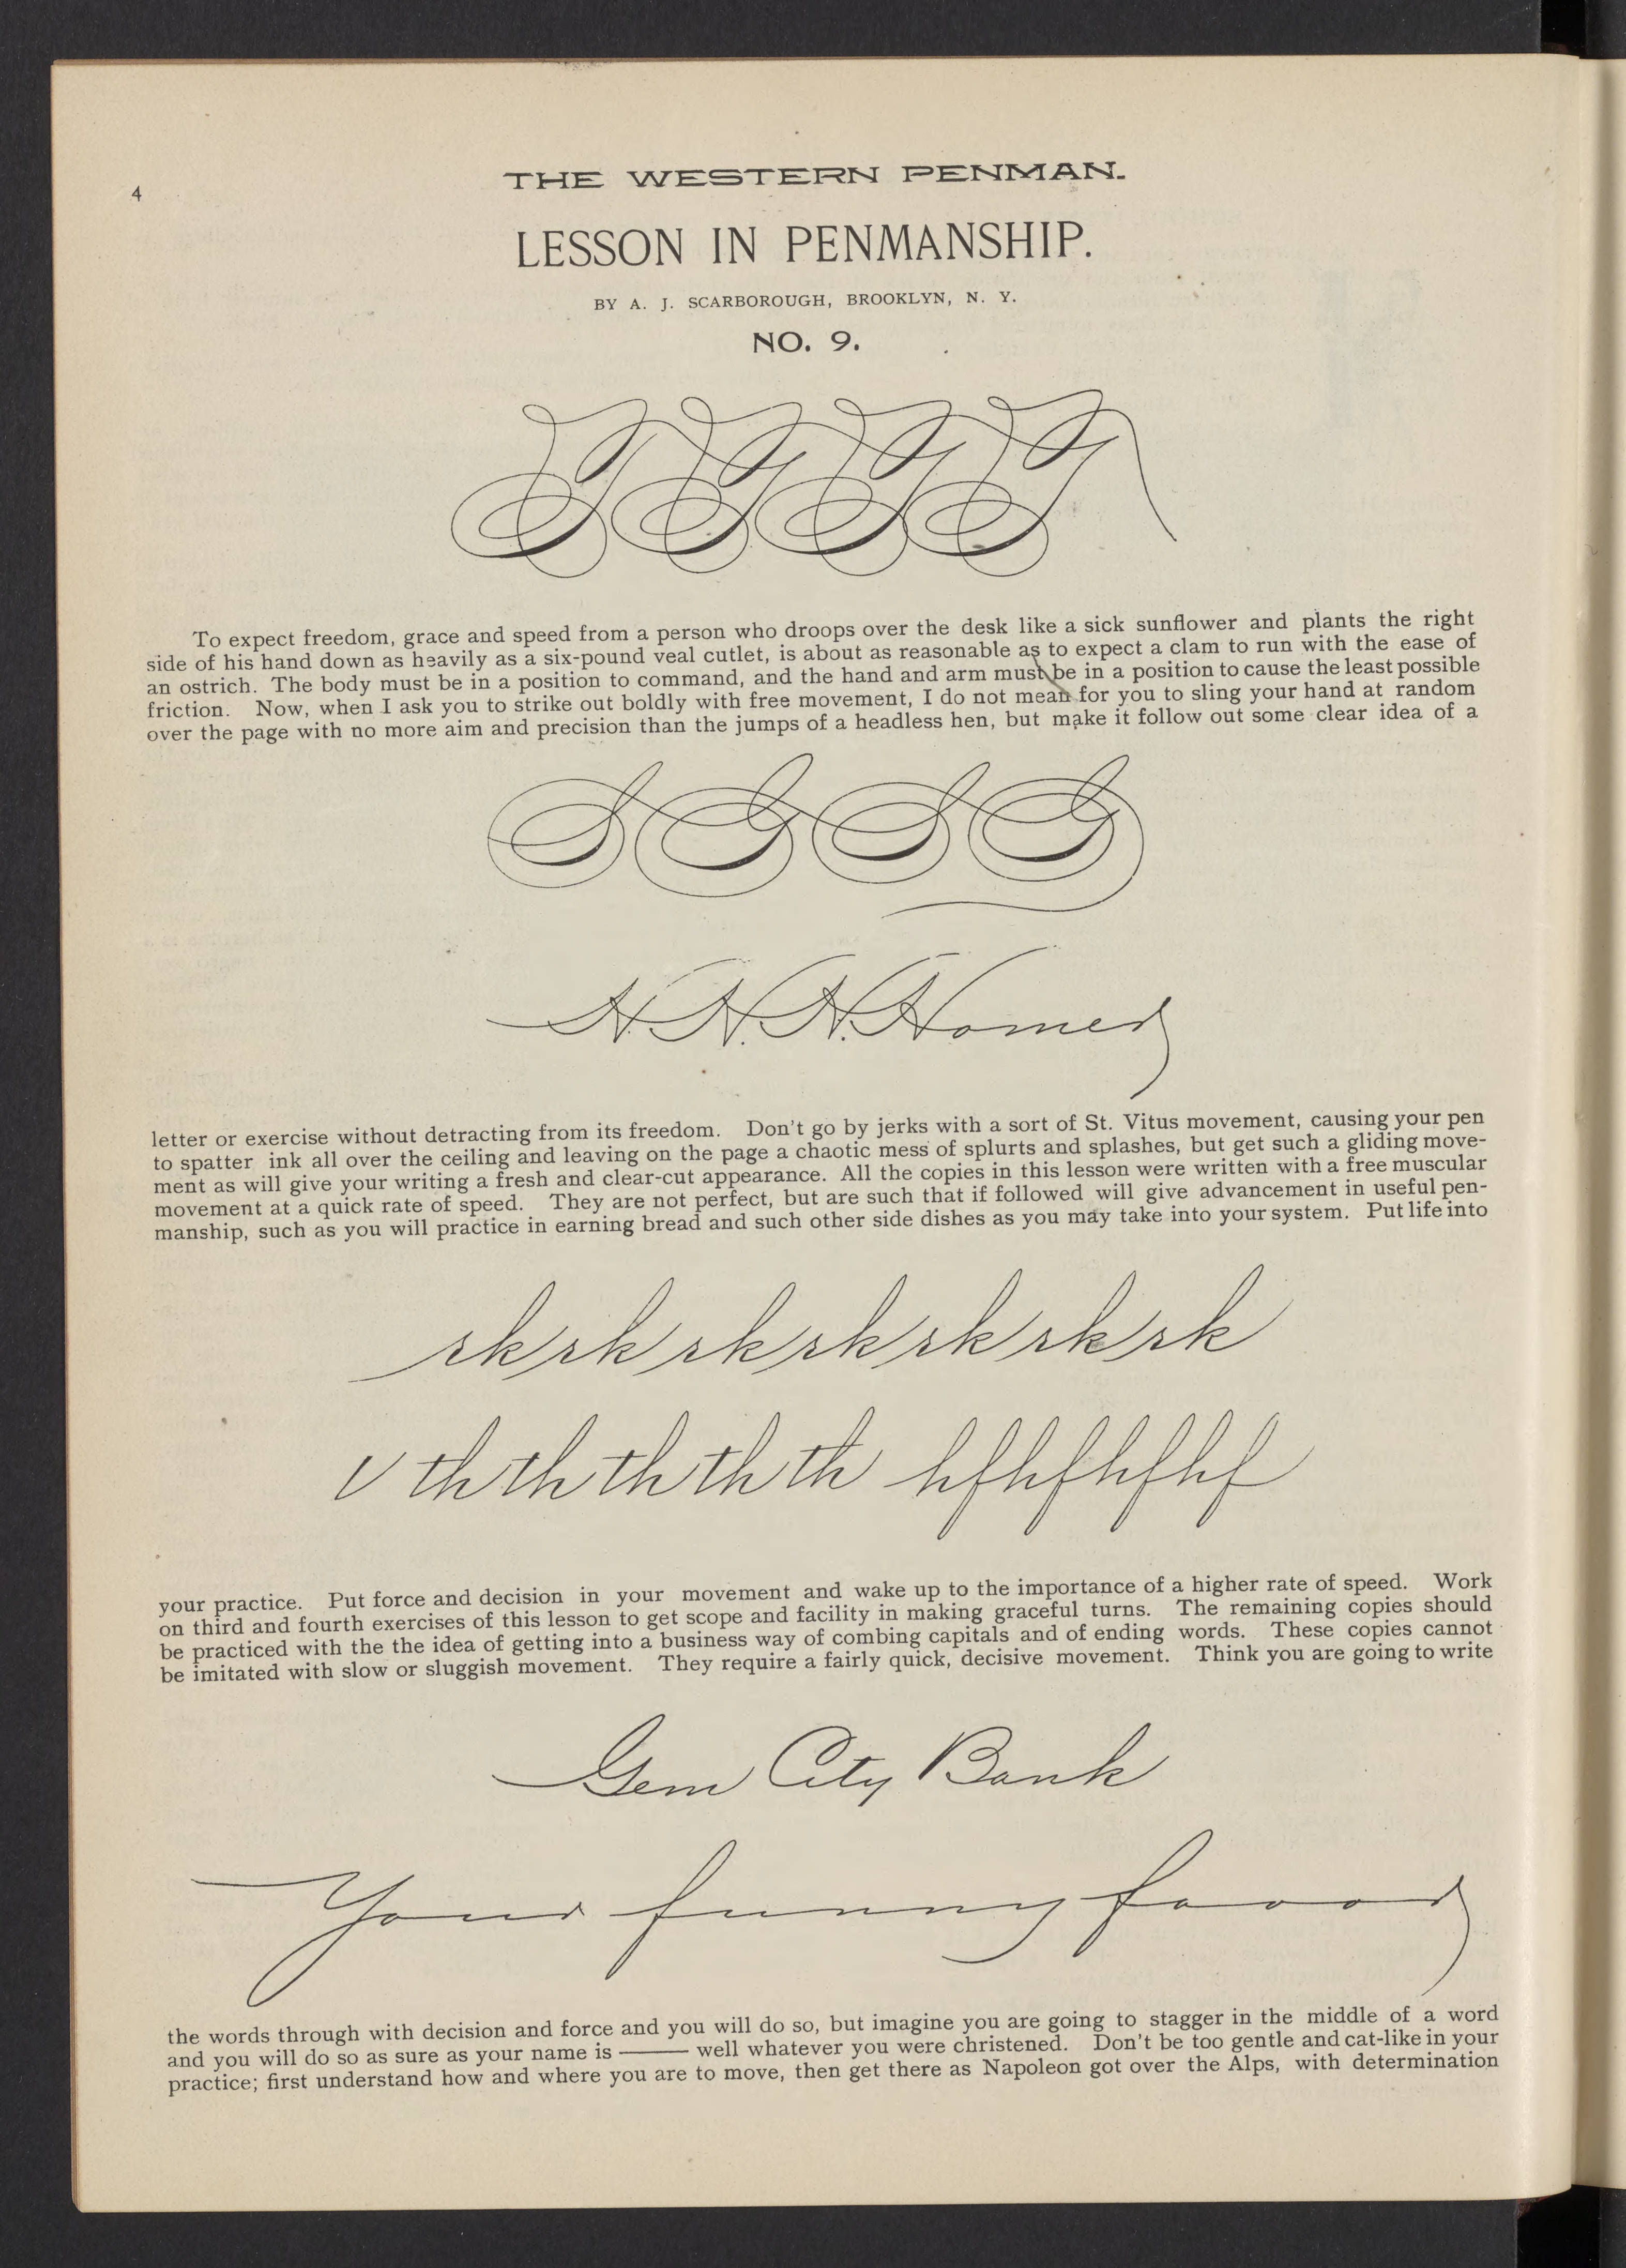 4
THE WESTERN PENMAN.
LESSON IN PENMANSHIP.
BY A. J. SCARBOROUGH, BROOKLYN, N. Y.
NO. 9.
To expect freedom, grace and speed from a person who droops over the desk like a sick sunflower and plants the right
side of his hand down as heavily as a six-pound veal cutlet, is about as reasonable as to expect a clam to run with the ease of
an ostrich. The body must be in a position to command, and the hand and arm must be in a position to cause the least possible
friction. Now, when I ask you to strike out boldly with free movement, I do not mean for you to sling your hand at random
over the page with no more aim and precision than the jumps of a headless hen, but make it follow out some clear idea of a
letter or exercise without detracting from its freedom. Don't go by jerks with a sort of St. Vitus movement, causing your pen
to spatter ink all over the ceiling and leaving on the page a chaotic mess of splurts and splashes, but get such a gliding move-
ment as will give your writing a fresh and clear-cut appearance. All the copies in this lesson were written with a free muscular
movement at a quick rate of speed. They are not perfect, but are such that if followed will give advancement in useful pen-
manship, such as you will practice in earning bread and such other side dishes as you may take into your system. Put life into
rk rk rk rk rk rk rk
th th th th th hfhfhfhf
your practice. Put force and decision in your movement and wake up to the importance of a higher rate of speed. Work
on third and fourth exercises of this lesson to get scope and facility in making graceful turns. The remaining copies should
be practiced with the the idea of getting into a business way of combing capitals and of ending words. These copies cannot
be imitated with slow or sluggish movement. They require a fairly quick, decisive movement. Think you are going to write
Gem City Bank
Your funny
the words through with decision and force and you will do so, but imagine you are going to stagger in the middle of a word
and you will do so as sure as your name is ——— well whatever you were christened. Don't be too gentle and cat-like in your
practice; first understand how and where you are to move, then get there as Napoleon got over the Alps, with determination